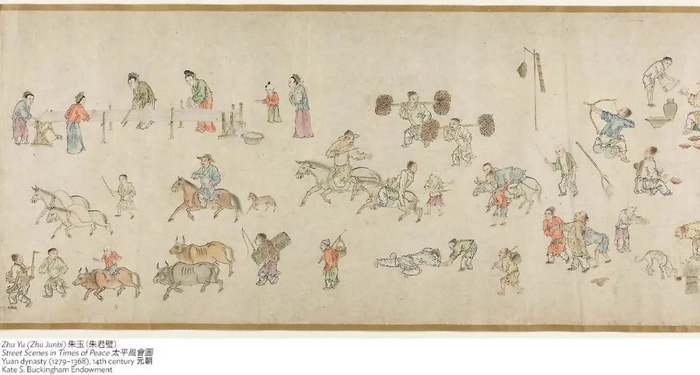 Zhu Yu (Zhu Junbi) 朱玉 (朱君壁)
Street Scenes in Times of Peace 太平風會圖
Yuan dynasty (1279–1368), 14th century 元朝
Kate S. Buckingham Endowment